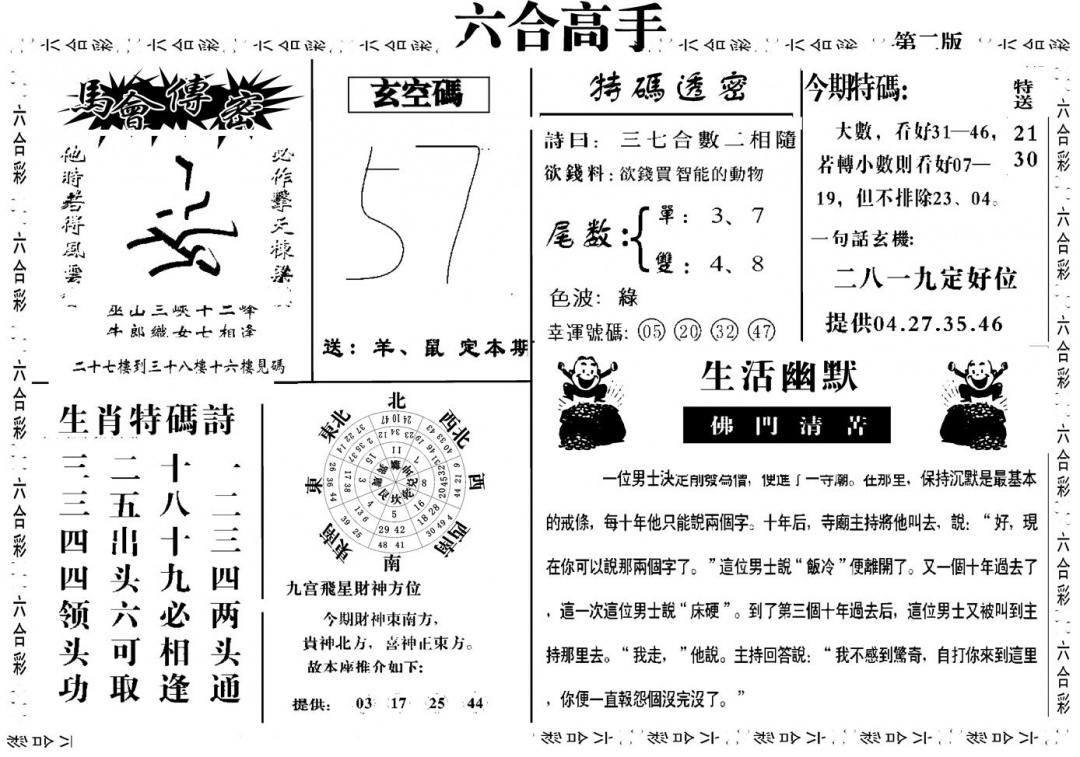 六合高手
第二版
馬會傳密
他時若得風雲
必作擎天棟梁
巫山三峽十二峰
牛郎織女七相逢
二十七樓到三十八樓十六樓見碼
玄空碼
57
送：羊、鼠 定本期
特碼透密
詩曰：三七合數二相隨
欲錢料：欲錢買智能的動物
尾数：
單：3、7
雙：4、8
色波：綠
幸運號碼：05 20 32 47
今期特碼：
特送
21
30
大數，看好31—46，
若轉小數則看好07—
19，但不排除23、04。
一句話玄機：
二八一九定好位
提供04.27.35.46
生肖特碼詩
一二三四两头通
十八十九必相逢
二五出头六可取
三三四四领头功
北
東北
西北
東
西
東南
西南
南
九宫飛星財神方位
今期財神東南方，
貴神北方，喜神正東方。
故本座推介如下：
提供： 03 17 25 44
生活幽默
佛門清苦
一位男士決定削發為僧，便進了一寺廟。在那里，保持沉默是最基本
的戒條，每十年他只能說兩個字。十年后，寺廟主持將他叫去，說：“好，現
在你可以說那兩個字了。”這位男士說“飯冷”便離開了。又一個十年過去了
，這一次這位男士說“床硬”。到了第三個十年過去后，這位男士又被叫到主
持那里去。“我走，”他說。主持回答說：“我不感到驚奇，自打你來到這里
，你便一直報怨個沒完沒了。”
六合彩 六合彩 六合彩 六合彩 六合彩
六合彩 六合彩 六合彩 六合彩 六合彩 六合彩